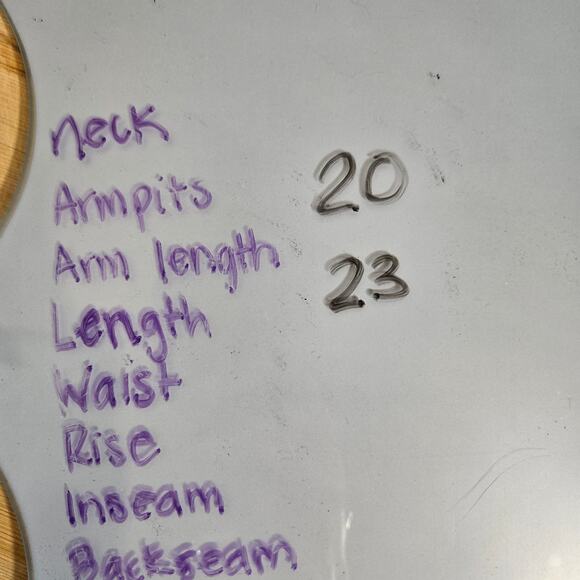 neck
Armpits 20
Arm length
Length 23
Waist
Rise
Inseam
Backseam